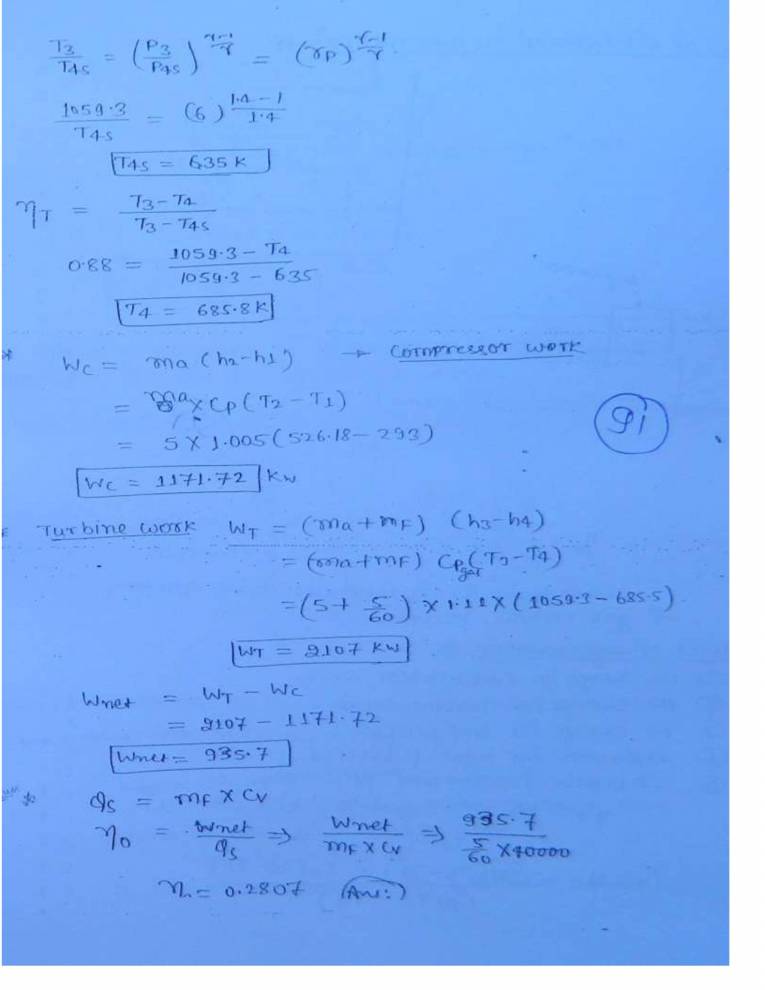 T3/T4s = (P3/P4s)^(γ-1/γ) = (γP)^(γ-1/γ)
1059.3/T4s = (6)^(1.4-1/1.4)
T4s = 635 K
ηT = T3-T4/T3-T4s
0.88 = 1059.3-T4/1059.3-635
T4 = 685.8 K
* Wc = ma (h2-h1) → Compressor work
= ma x Cp (T2-T1)
91
= 5 x 1.005 (526.18-293)
Wc = 1171.72 Kw
* Turbine work WT = (ma+mF) (h3-h4)
= (ma+mF) Cpgas (T3-T4)
= (5+ 5/60) x 1.11 x (1059.3-685.5)
WT = 2107 Kw
Wnet = WT - Wc
= 2107 - 1171.72
Wnet = 935.7
* qs = mF x Cv
η0 = Wnet/qs ⇒ Wnet/mF x Cv ⇒ 935.7/5/60 x 40000
η = 0.2807 (Ans:)